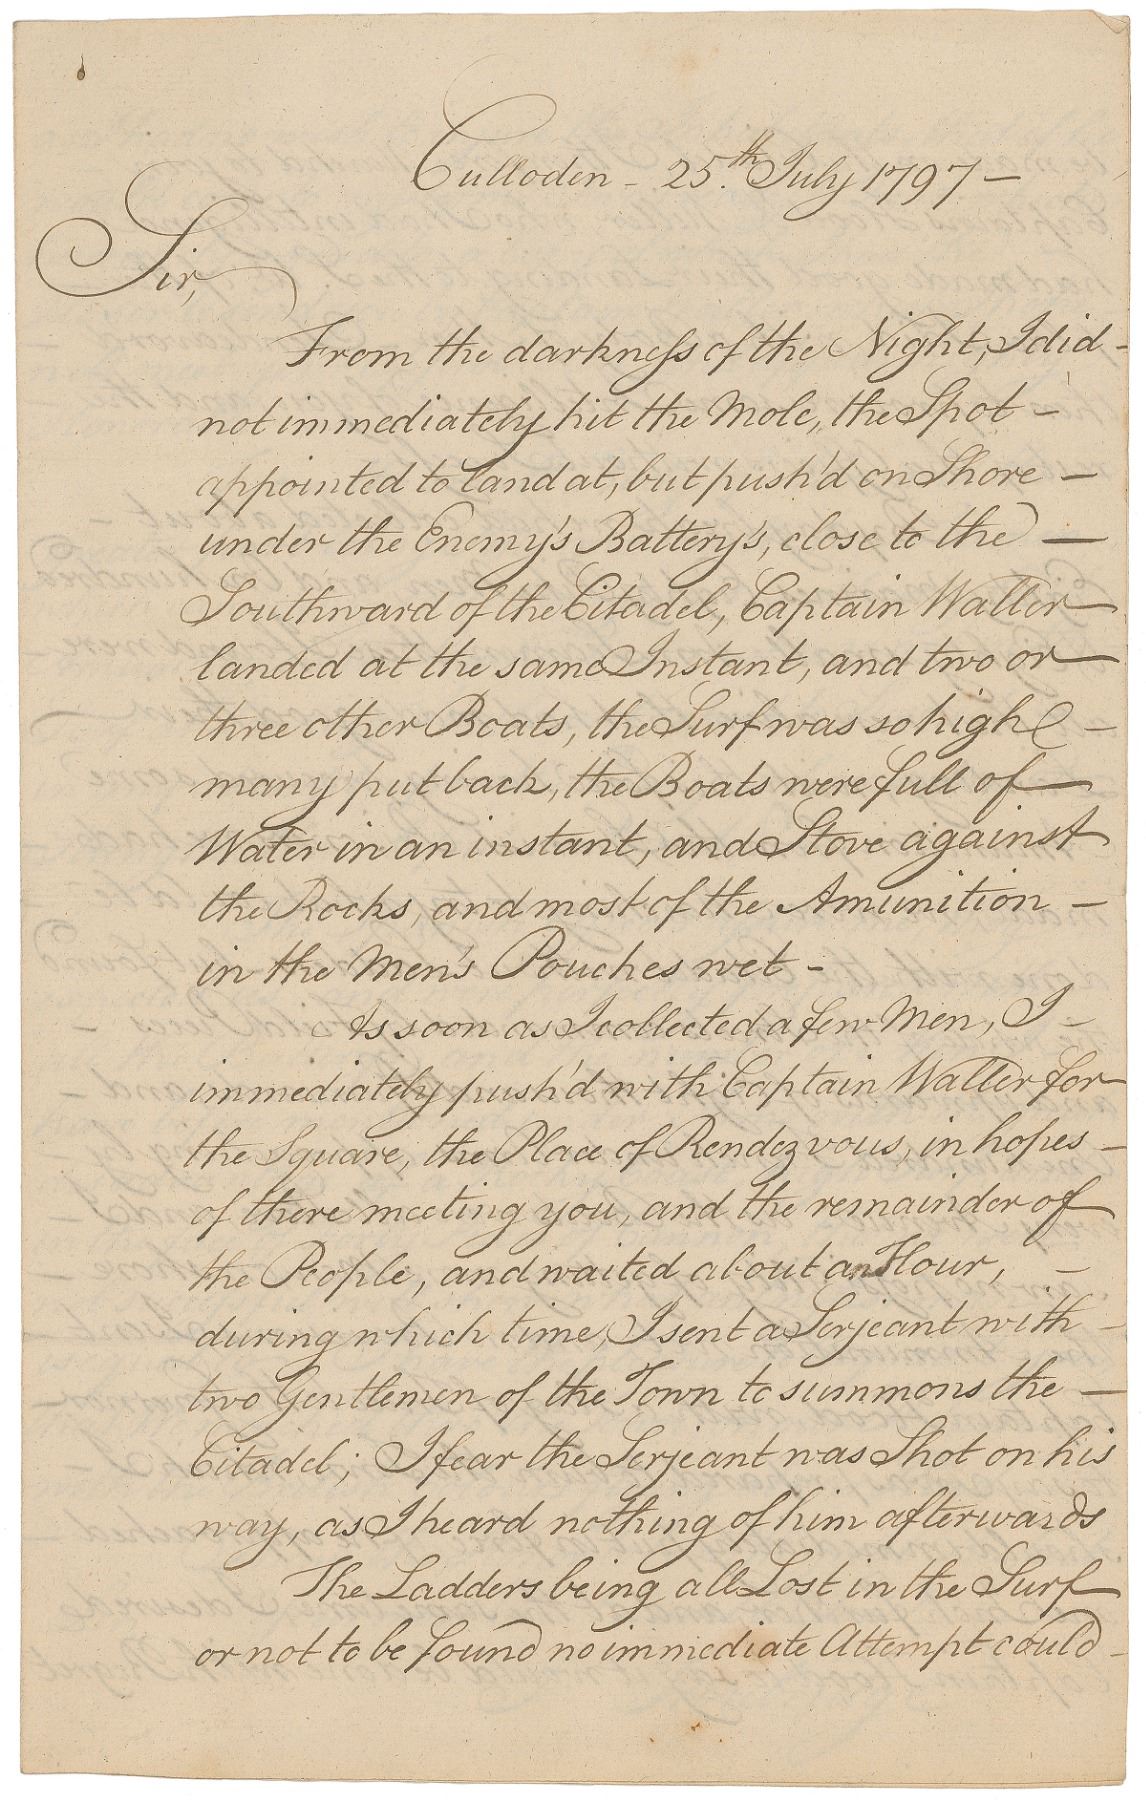 Culloden - 25.th July 1797 -
Sir,
From the darkneſs of the Night, I did -
not immediately hit the Mole, the Spot -
appointed to land at, but push'd on Shore -
under the Enemy's Battery's, close to the -
Southward of the Citadel, Captain Waller
landed at the same Instant, and two or
three other Boats, the Surf was so high -
many put back, the Boats were full of
Water in an instant, and Stove against
the Rocks, and most of the Amunition -
in the Men's Pouches wet -
As soon as I collected a few Men, I -
immediately push'd with Captain Waller for
the Square, the Place of Rendezvous, in hopes -
of there meeting you, and the remainder of
the People, and waited about an Hour, -
during which time, I sent a Serjeant with -
two Gentlemen of the Town to summons the -
Citadel; I fear the Serjeant was Shot on his
way, as I heard nothing of him afterwards
The Ladders being all Lost in the Surf
or not to be found no immediate Attempt could -